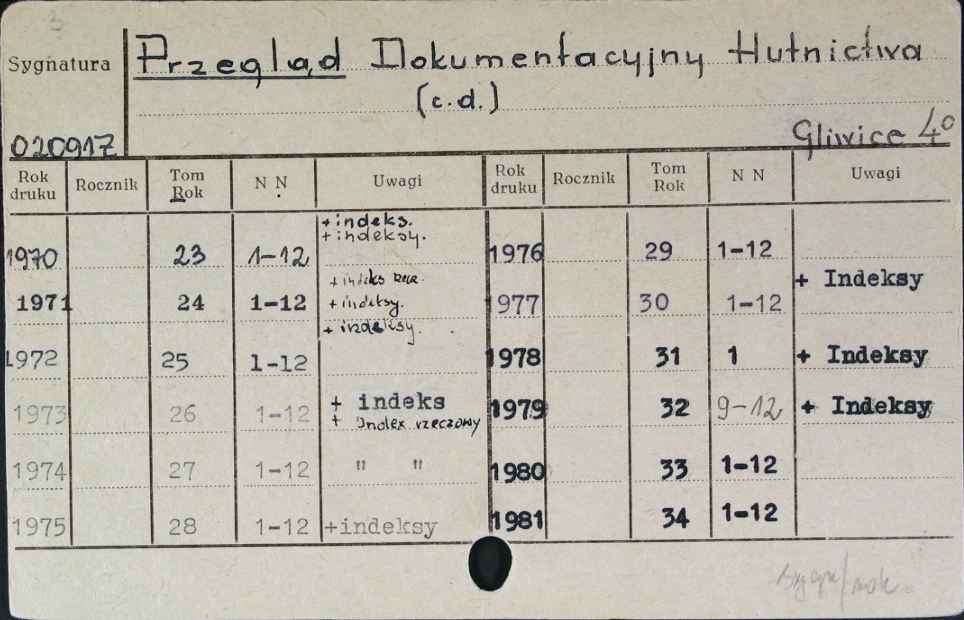 3
Sygnatura Przegląd Dokumentacyjny Hutnictwa
(c.d.)
020917 Gliwice 4°
Rok druku Rocznik Tom Rok N N Uwagi Rok druku Rocznik Tom Rok N N Uwagi
+indeks.
1970 23 1-12 +indeksy. 1976 29 1-12
+indeks rzecz.
+ Indeksy
1971 24 1-12 +indeksy. 1977 30 1-12
+indeksy.
1972 25 1-12 1978 31 1 + Indeksy
1973 26 1-12 + indeks 1979 32 9-12 + Indeksy
+ Index rzeczowy
1974 27 1-12 " " 1980 33 1-12
1975 28 1-12 +indeksy 1981 34 1-12